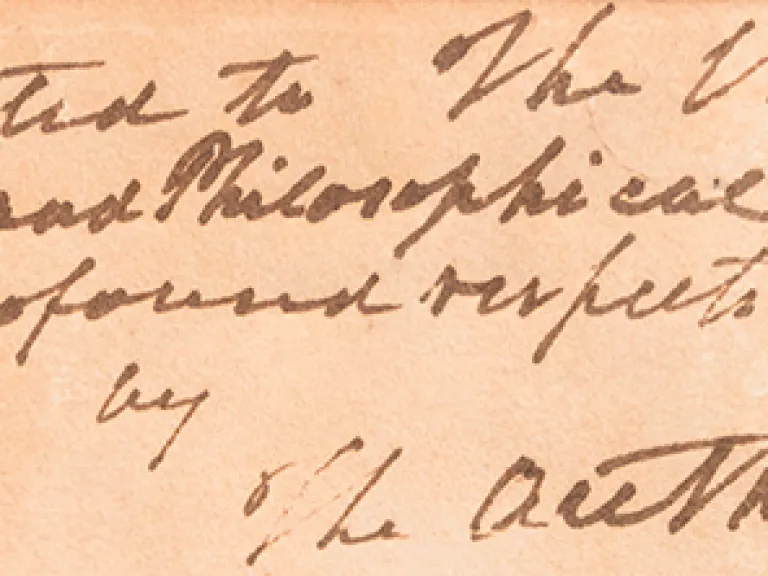 ted to The
and Philosophical
ofound respects
by
The Auth